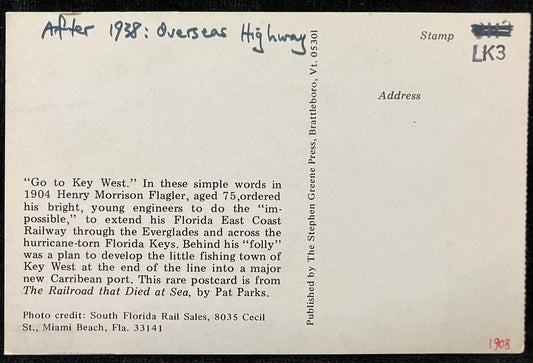 After 1938: Overseas Highway
Stamp
LK3
Address
"Go to Key West." In these simple words in
1904 Henry Morrison Flagler, aged 75,ordered
his bright, young engineers to do the "im-
possible," to extend his Florida East Coast
Railway through the Everglades and across the
hurricane-torn Florida Keys. Behind his "folly"
was a plan to develop the little fishing town of
Key West at the end of the line into a major
new Carribean port. This rare postcard is from
The Railroad that Died at Sea, by Pat Parks.
Photo credit: South Florida Rail Sales, 8035 Cecil
St., Miami Beach, Fla. 33141
Published by The Stephen Greene Press, Brattleboro, Vt. 05301
1908